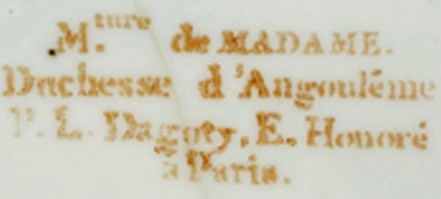 M.ture de MADAME.
Duchesse d'Angouléme
P. L. Dagoty, E. Honoré
à Paris.